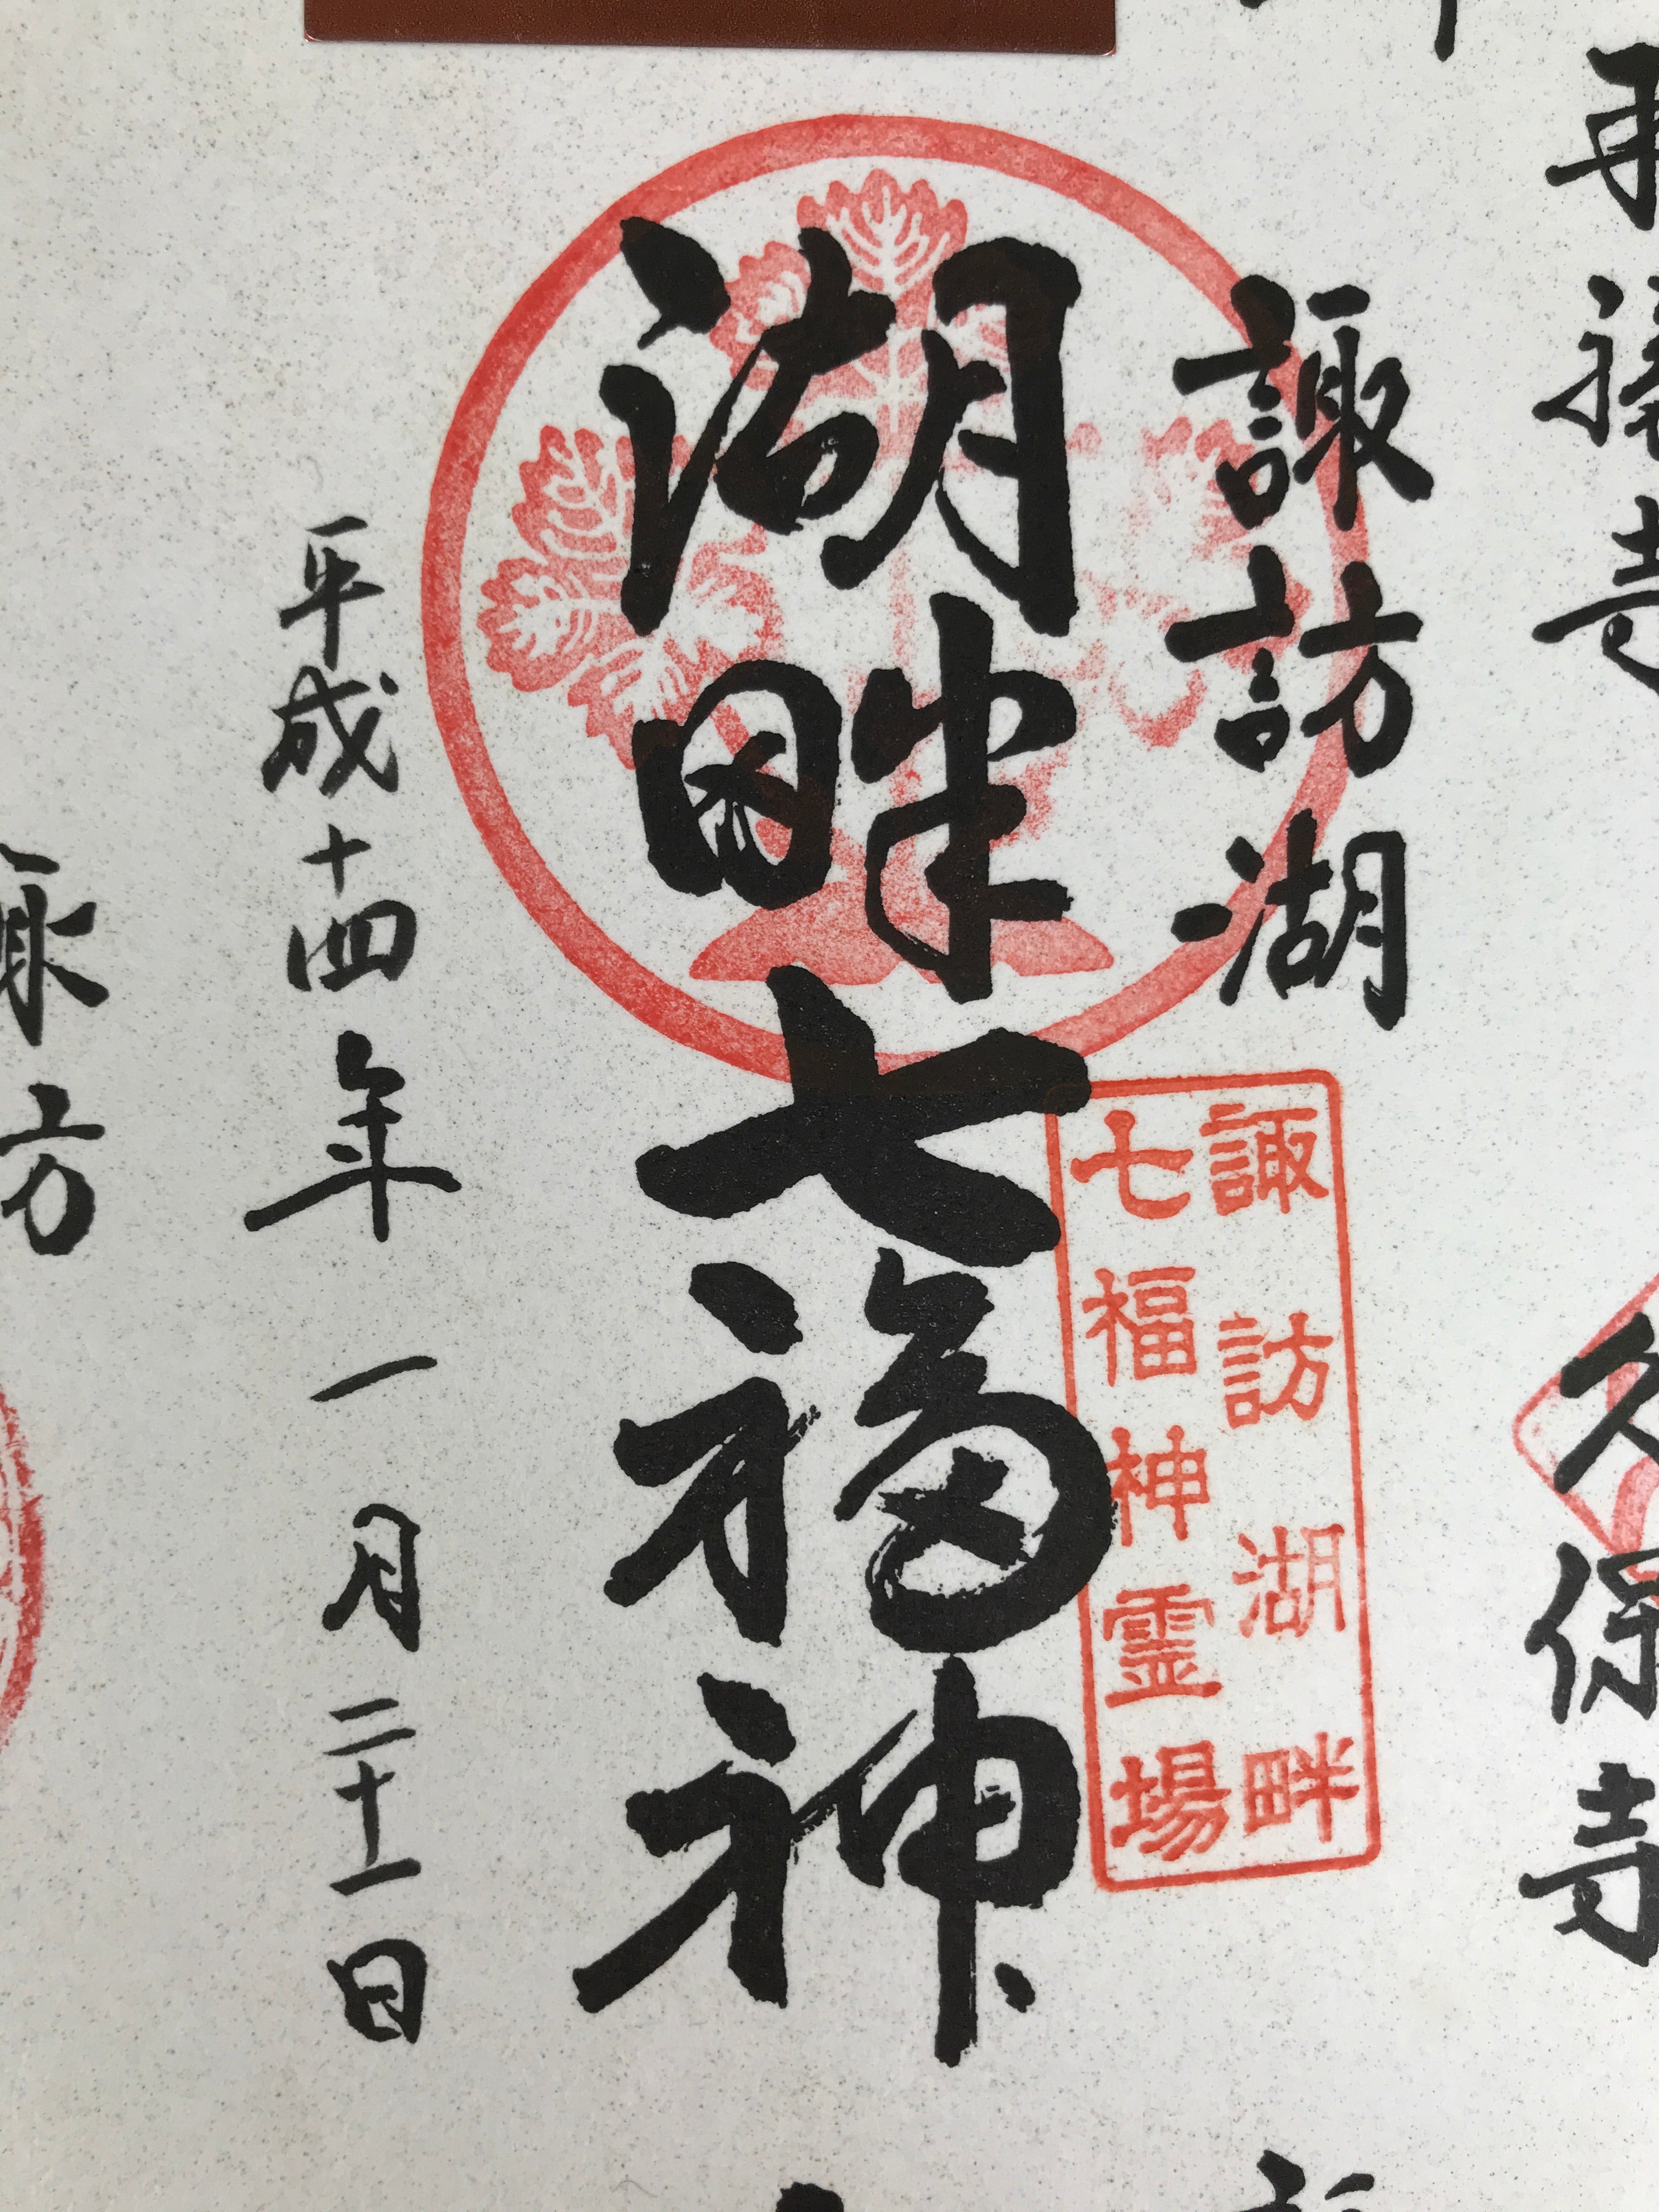 寺
久保寺
諏訪湖
諏訪湖畔
七福神霊場
湖畔七福神
平成十四年一月二十一日